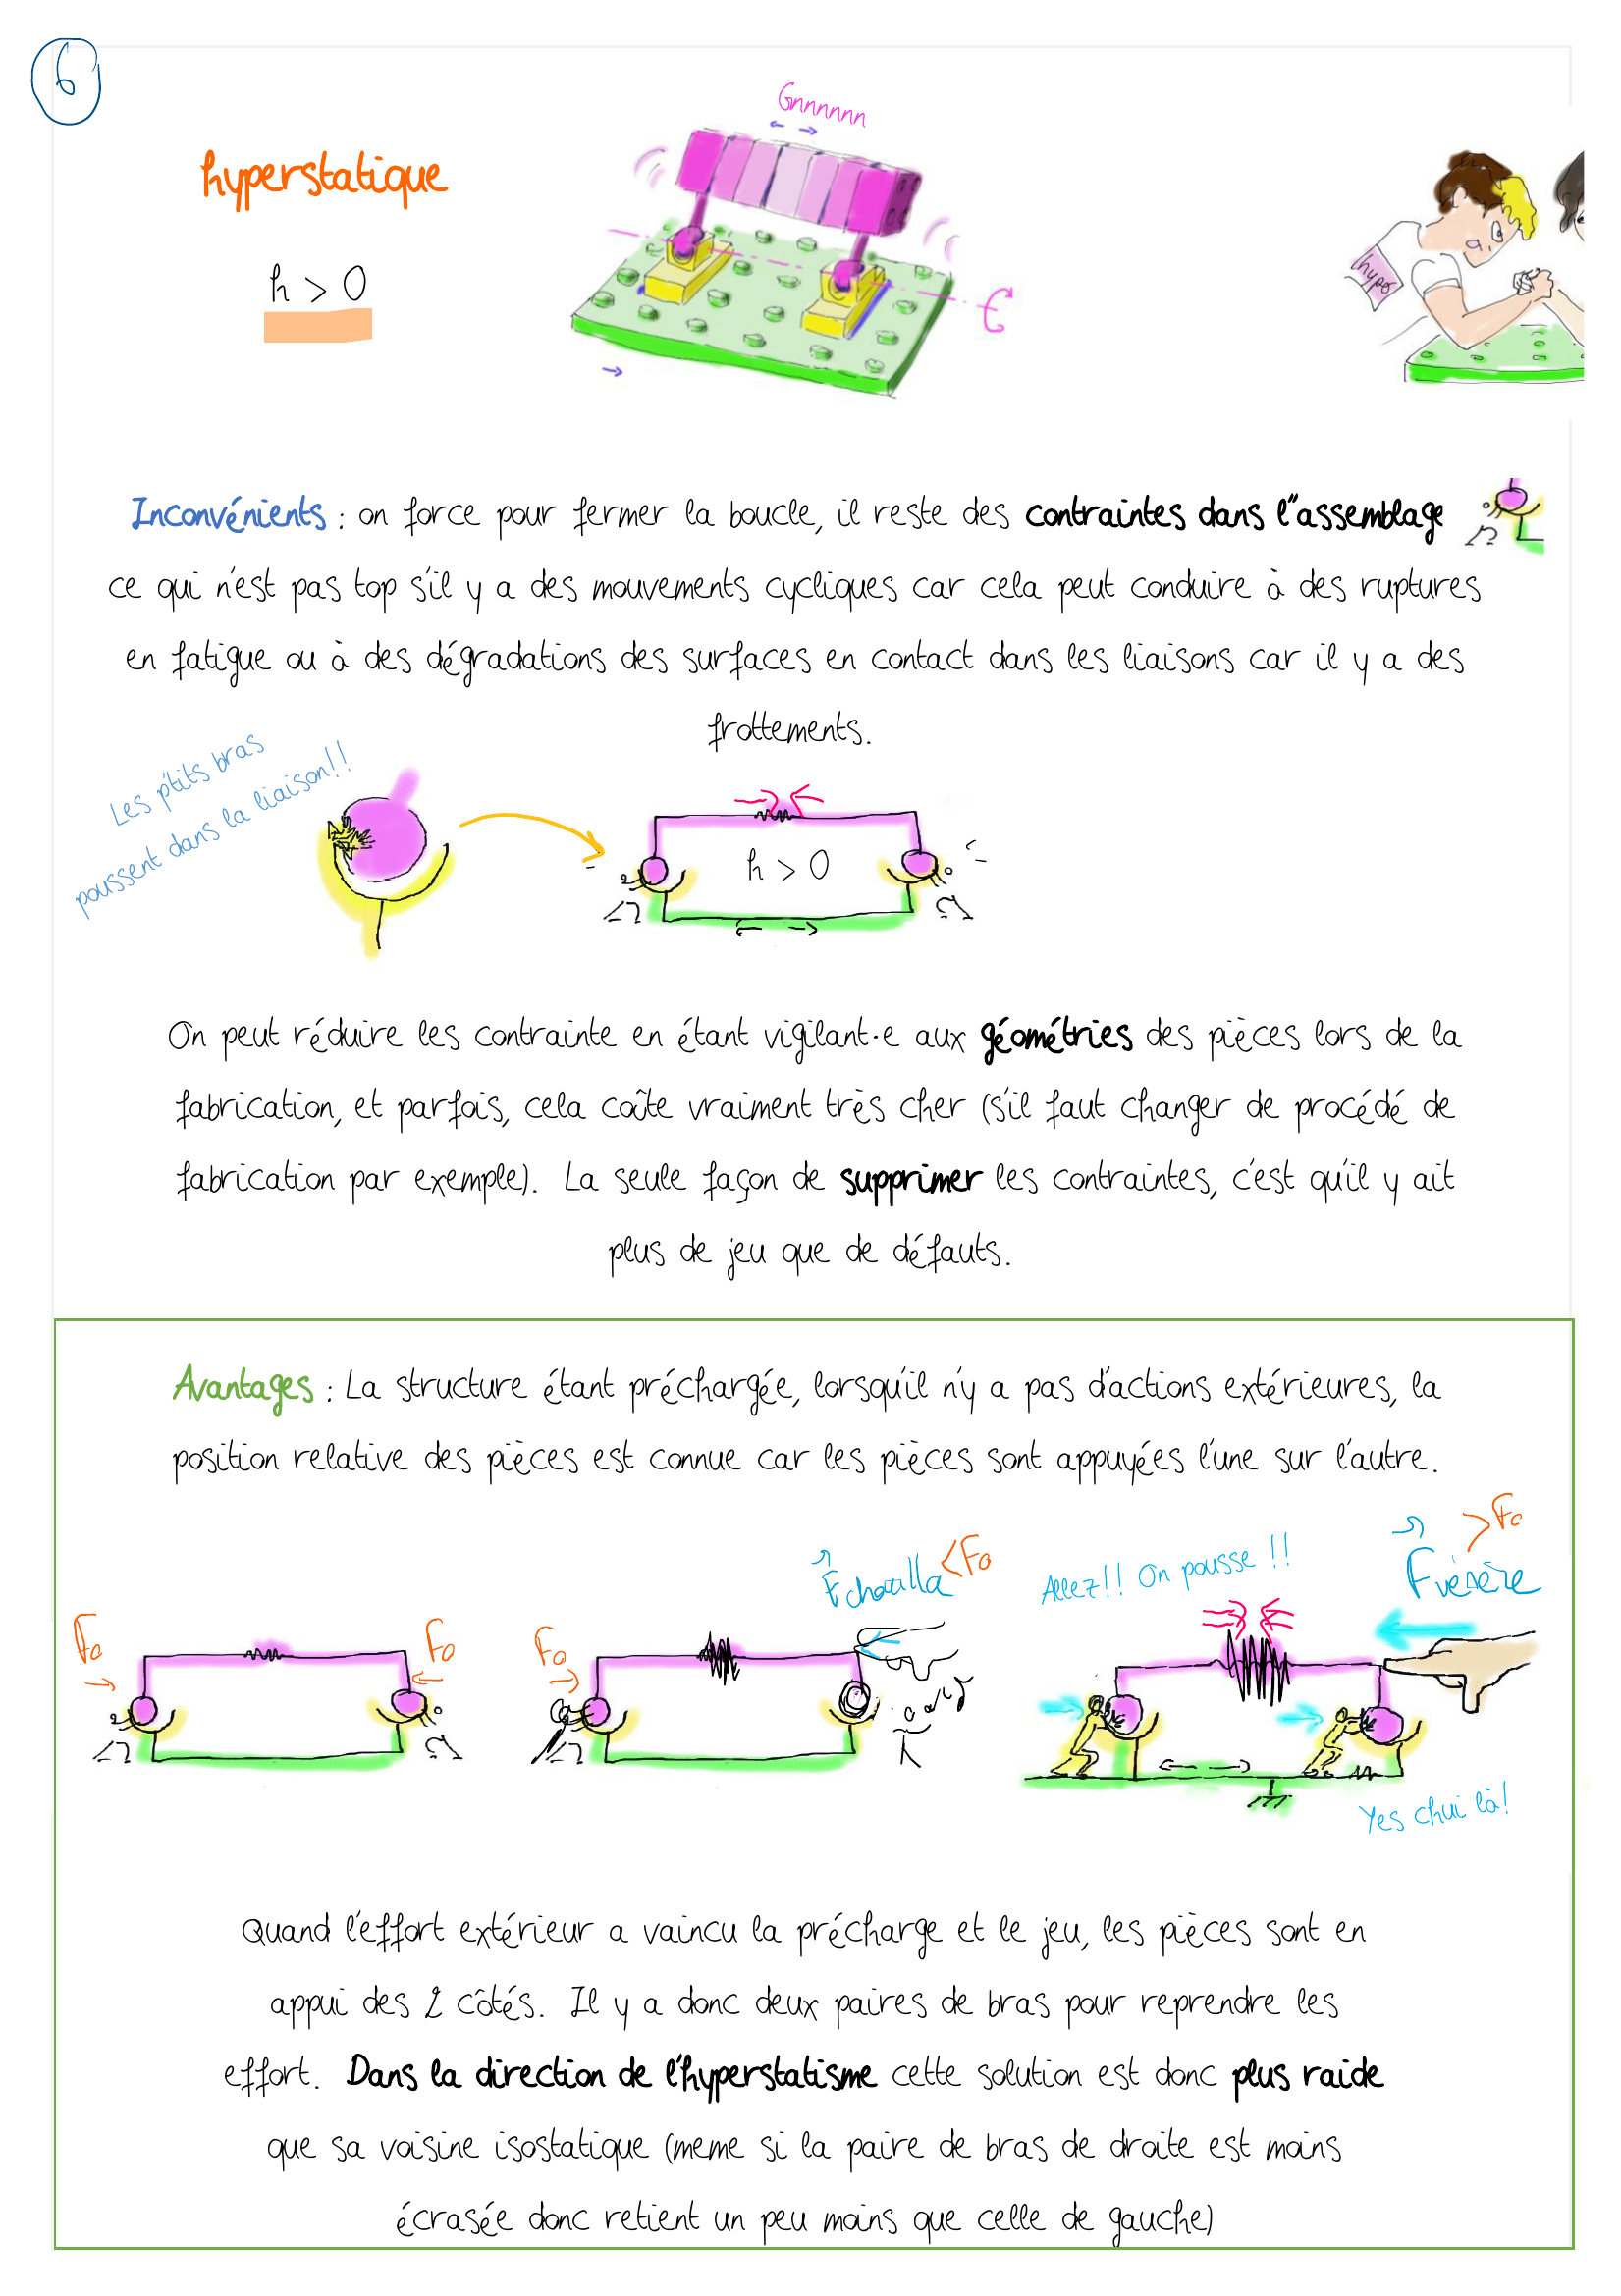 6
Gnnnnnn
hyperstatique
h > 0
hypo
Inconvénients : on force pour fermer la boucle, il reste des contraintes dans l"assemblage
ce qui n'est pas top s'il y a des mouvements cycliques car cela peut conduire à des ruptures
en fatigue ou à des dégradations des surfaces en contact dans les liaisons car il y a des
frottements.
Les p'tits bras
poussent dans la liaison!!
h > 0
On peut réduire les contrainte en étant vigilant·e aux géométries des pièces lors de la
fabrication, et parfois, cela coûte vraiment très cher (s'il faut changer de procédé de
fabrication par exemple). La seule façon de supprimer les contraintes, c'est qu'il y ait
plus de jeu que de défauts.
Avantages : La structure étant préchargée, lorsqu'il n'y a pas d'actions extérieures, la
position relative des pièces est connue car les pièces sont appuyées l'une sur l'autre.
Fo
Fo
Fo
Fchouilla < Fo
Allez!! On pousse !!
Fvénère > Fo
Yes chui là!
Quand l'effort extérieur a vaincu la précharge et le jeu, les pièces sont en
appui des 2 côtés. Il y a donc deux paires de bras pour reprendre les
effort. Dans la direction de l'hyperstatisme cette solution est donc plus raide
que sa voisine isostatique (meme si la paire de bras de droite est moins
écrasée donc retient un peu moins que celle de gauche)